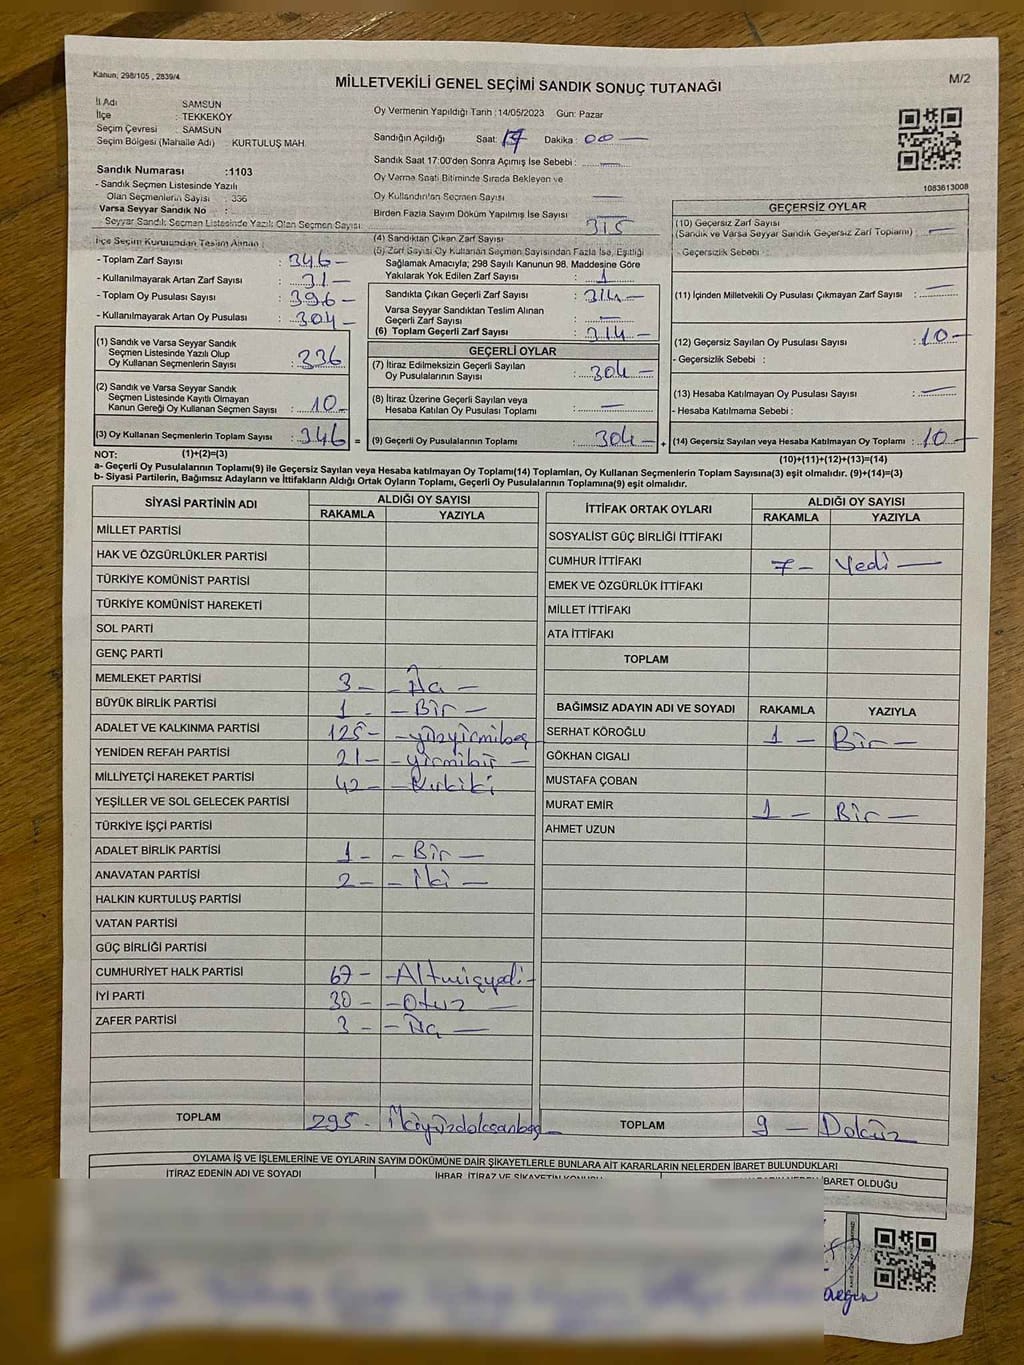 Kanun; 298/105 , 2839/4
MİLLETVEKİLİ GENEL SEÇİMİ SANDIK SONUÇ TUTANAĞI
M/2
İl Adı SAMSUN
İlçe : TEKKEKÖY
Seçim Çevresi : SAMSUN
Seçim Bölgesi (Mahalle Adı) : KURTULUŞ MAH.
Sandık Numarası :1103
- Sandık Seçmen Listesinde Yazılı
Olan Seçmenlerin Sayısı : 336
Varsa Seyyar Sandık No :
- Seyyar Sandık Seçmen Listesinde Yazılı Olan Seçmen Sayısı:
Oy Vermenin Yapıldığı Tarih :14/05/2023 Gün: Pazar
Sandığın Açıldığı Saat: 17 Dakika : 00 —
Sandık Saat 17:00'den Sonra Açılmış İse Sebebi : —
Oy Verme Saati Bitiminde Sırada Bekleyen ve
Oy Kullandırılan Seçmen Sayısı —
Birden Fazla Sayım Döküm Yapılmış İse Sayısı
1083613008
İlçe Seçim Kurulundan Teslim Alınan :
- Toplam Zarf Sayısı : 346 —
- Kullanılmayarak Artan Zarf Sayısı : 31 —
- Toplam Oy Pusulası Sayısı : 396 —
- Kullanılmayarak Artan Oy Pusulası : 304 —
(1) Sandık ve Varsa Seyyar Sandık
Seçmen Listesinde Yazılı Olup
Oy Kullanan Seçmenlerin Sayısı : 336
(2) Sandık ve Varsa Seyyar Sandık
Seçmen Listesinde Kayıtlı Olmayan
Kanun Gereği Oy Kullanan Seçmen Sayısı : 10 —
(3) Oy Kullanan Seçmenlerin Toplam Sayısı : 346 =
(4) Sandıktan Çıkan Zarf Sayısı : 315
(5) Zarf Sayısı Oy Kullanan Seçmen Sayısından Fazla İse, Eşitliği
Sağlamak Amacıyla; 298 Sayılı Kanunun 98. Maddesine Göre
Yakılarak Yok Edilen Zarf Sayısı : 1
Sandıkta Çıkan Geçerli Zarf Sayısı : 314 —
Varsa Seyyar Sandıktan Teslim Alınan
Geçerli Zarf Sayısı : —
(6) Toplam Geçerli Zarf Sayısı : 314 —
GEÇERLİ OYLAR
(7) İtiraz Edilmeksizin Geçerli Sayılan
Oy Pusulalarının Sayısı : 304 —
(8) İtiraz Üzerine Geçerli Sayılan veya
Hesaba Katılan Oy Pusulası Toplamı : —
(9) Geçerli Oy Pusulalarının Toplamı : 304 — +
GEÇERSİZ OYLAR
(10) Geçersiz Zarf Sayısı
(Sandık ve Varsa Seyyar Sandık Geçersiz Zarf Toplamı) : —
- Geçersizlik Sebebi :
(11) İçinden Milletvekili Oy Pusulası Çıkmayan Zarf Sayısı : —
(12) Geçersiz Sayılan Oy Pusulası Sayısı : 10 —
- Geçersizlik Sebebi :
(13) Hesaba Katılmayan Oy Pusulası Sayısı : —
- Hesaba Katılmama Sebebi :
(14) Geçersiz Sayılan veya Hesaba Katılmayan Oy Toplamı : 10 —
NOT: (1)+(2)=(3) (10)+(11)+(12)+(13)=(14)
a- Geçerli Oy Pusulalarının Toplamı(9) ile Geçersiz Sayılan veya Hesaba katılmayan Oy Toplamı(14) Toplamları, Oy Kullanan Seçmenlerin Toplam Sayısına(3) eşit olmalıdır. (9)+(14)=(3)
b- Siyasi Partilerin, Bağımsız Adayların ve İttifakların Aldığı Ortak Oyların Toplamı, Geçerli Oy Pusulalarının Toplamına(9) eşit olmalıdır.
SİYASİ PARTİNİN ADI ALDIĞI OY SAYISI
RAKAMLA YAZIYLA
MİLLET PARTİSİ
HAK VE ÖZGÜRLÜKLER PARTİSİ
TÜRKİYE KOMÜNİST PARTİSİ
TÜRKİYE KOMÜNİST HAREKETİ
SOL PARTİ
GENÇ PARTİ
MEMLEKET PARTİSİ 3 — — Üç —
BÜYÜK BİRLİK PARTİSİ 1 - — Bir —
ADALET VE KALKINMA PARTİSİ 125 — — yüzyirmibeş
YENİDEN REFAH PARTİSİ 21 — — yirmibir —
MİLLİYETÇİ HAREKET PARTİSİ 42 — — Kırkiki
YEŞİLLER VE SOL GELECEK PARTİSİ
TÜRKİYE İŞÇİ PARTİSİ
ADALET BİRLİK PARTİSİ 1 - — Bir —
ANAVATAN PARTİSİ 2 — — İki —
HALKIN KURTULUŞ PARTİSİ
VATAN PARTİSİ
GÜÇ BİRLİĞİ PARTİSİ
CUMHURİYET HALK PARTİSİ 67 — — Altmışyedi —
İYİ PARTİ 30 — — Otuz —
ZAFER PARTİSİ 3 — — Üç —
TOPLAM 295 - İkiyüzdoksanbeş —
İTTİFAK ORTAK OYLARI ALDIĞI OY SAYISI
RAKAMLA YAZIYLA
SOSYALİST GÜÇ BİRLİĞİ İTTİFAKI
CUMHUR İTTİFAKI 7 — Yedi —
EMEK VE ÖZGÜRLÜK İTTİFAKI
MİLLET İTTİFAKI
ATA İTTİFAKI
TOPLAM
BAĞIMSIZ ADAYIN ADI VE SOYADI RAKAMLA YAZIYLA
SERHAT KÖROĞLU 1 — Bir —
GÖKHAN CIGALI
MUSTAFA ÇOBAN
MURAT EMİR 1 — Bir —
AHMET UZUN
TOPLAM 9 — Dokuz
OYLAMA İŞ VE İŞLEMLERİNE VE OYLARIN SAYIM DÖKÜMÜNE DAİR ŞİKAYETLERLE BUNLARA AİT KARARLARIN NELERDEN İBARET BULUNDUKLARI
İTİRAZ EDENİN ADI VE SOYADI İHBAR, İTİRAZ VE ŞİKAYETİN KONUSU İBARET OLDUĞU